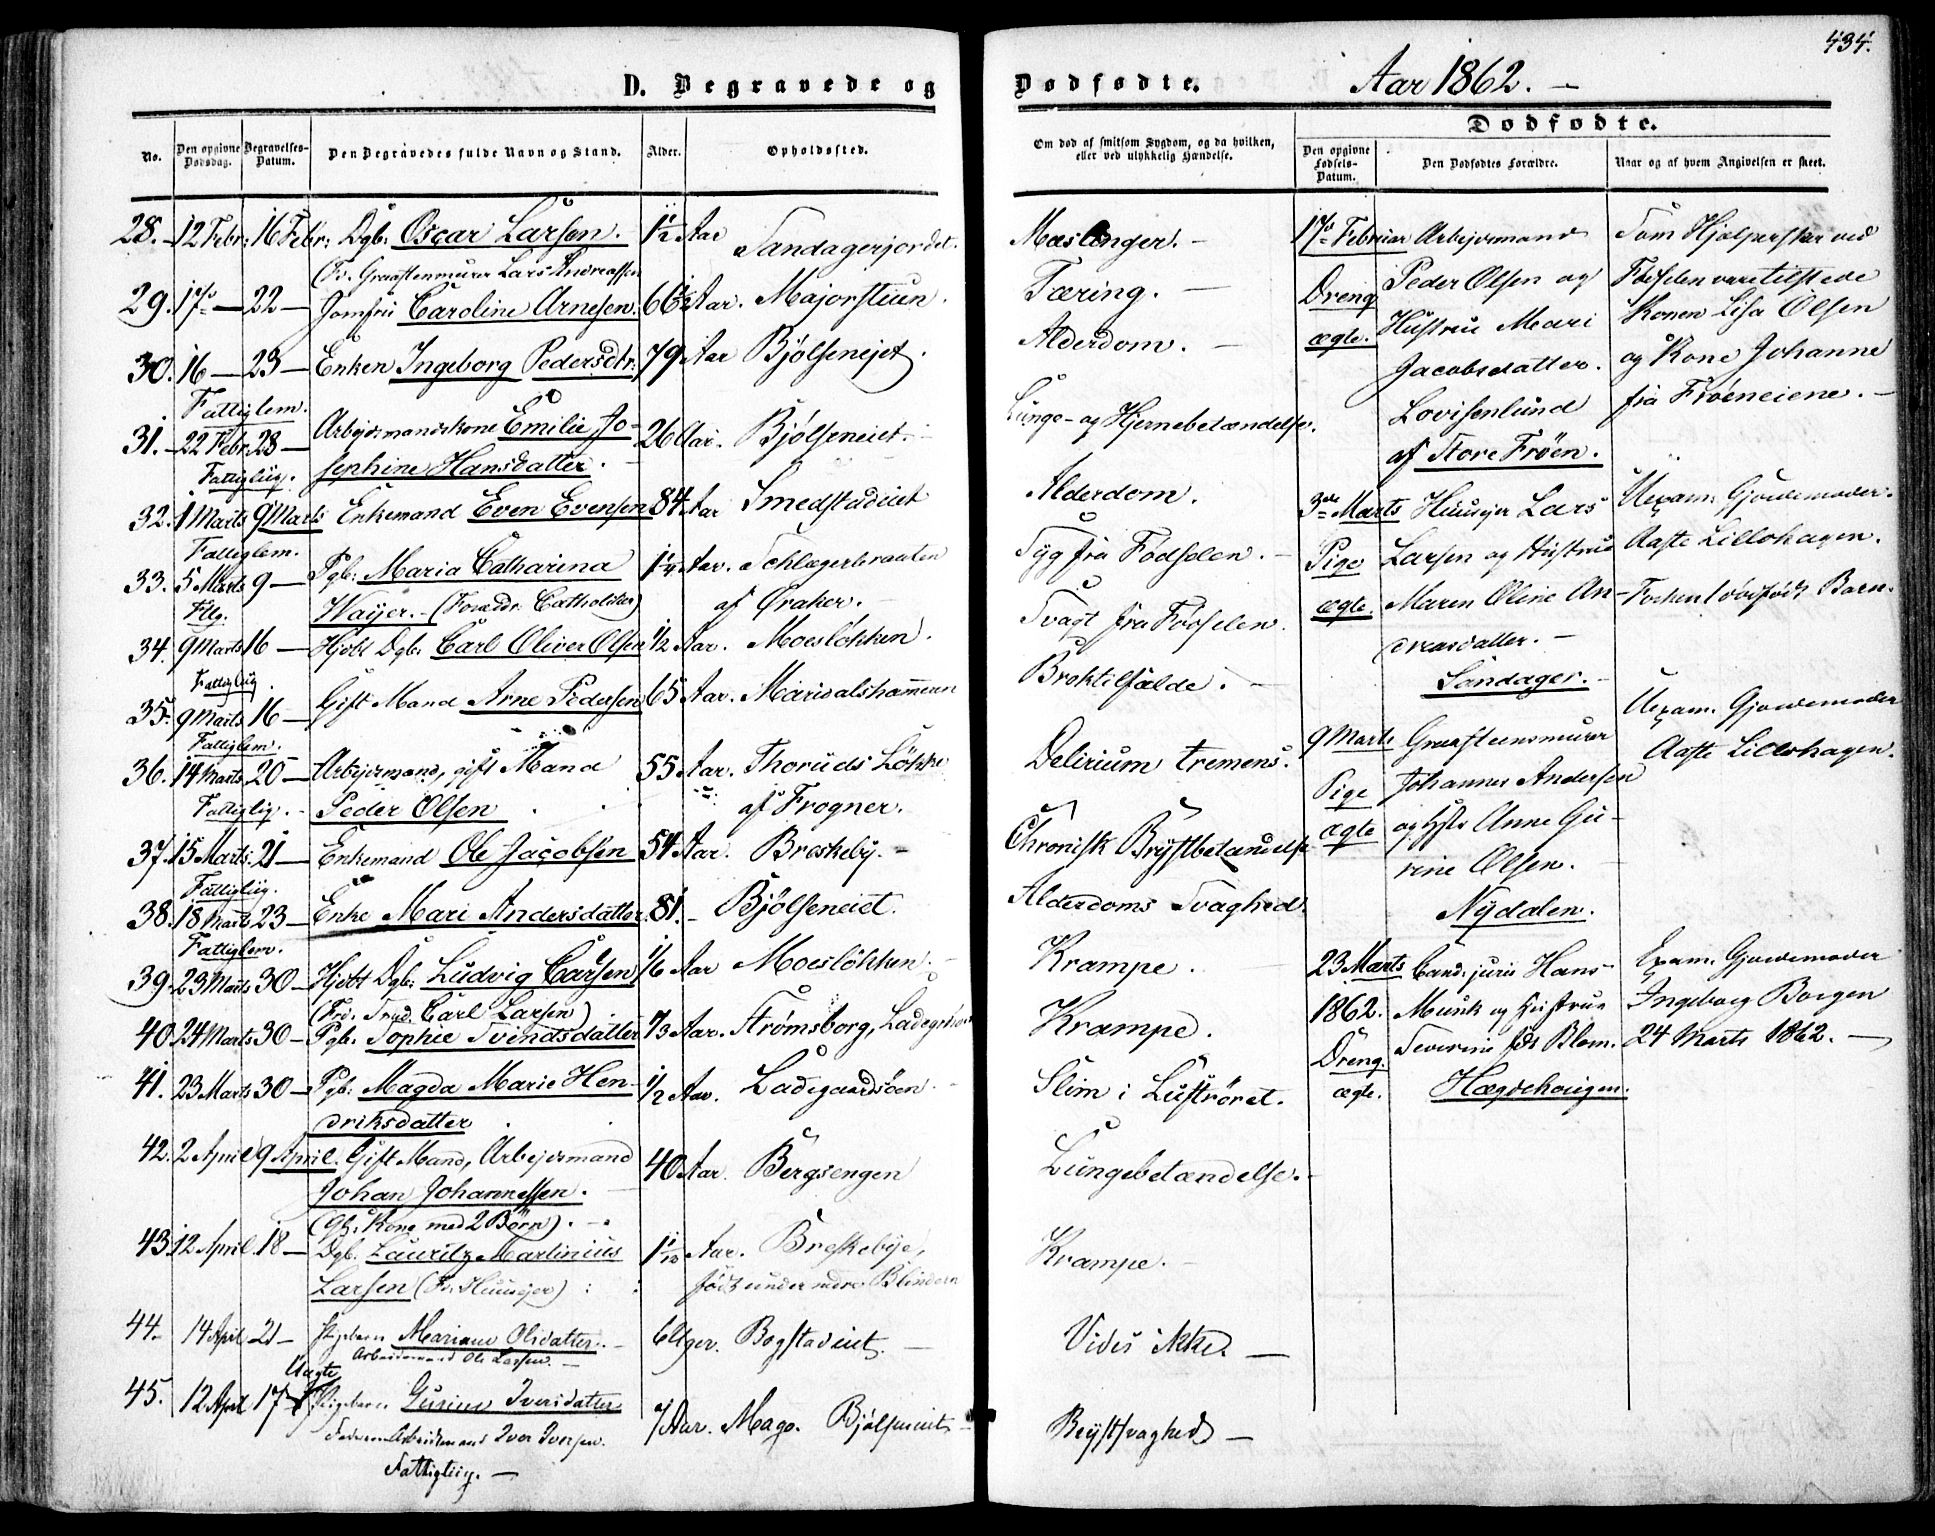 434.
D. Begravede og
Dødfødte.
Aar 1862. —
No.
Den opgivne Dødsdag.
Begravelses-Datum.
Den Begravedes fulde Navn og Stand.
Alder.
Opholdssted.
Om død af smitsom Sygdom, og da hvilken, eller ved ulykkelig Hændelse.
Dødfødte.
Den opgivne Fødsels-Datum.
Den Dødfødtes Forældre.
Naar og af hvem Angivelsen er skeet.
28. 12 Febr: 16 Febr: Dgb: Oscar Larsen. 1½ Aar Sandagerjordet. Mæslinger. —
(Fr. Graasteenmurer Lars Andreassen
29. 17de — 22 — Jomfru Caroline Arnesen. 66½ Aar. Majorstuen. Tæring. —
30. 16 — 23 — Enken Ingeborg Pedersdtr: 79 Aar Bjølseneiet. Alderdom. —
Fattiglem.
31. 22 Febr. 28 — Arbejdsmandskone Emilie Jo- 26 Aar. Bjølseneiet. Lunge- og Hjernebetændelse.
Fattiglig. sephine Hansdatter.
32. 1 Marts 9 Marts Enkemand Even Evensen 84 Aar Smedstadeiet Alderdom.
Fattiglem.
33. 5 Marts 9 — Pgb: Maria Catharina 1¼ Aar. Schlægerbraaten Syg fra Fødselen. —
Flg. Wayer. — (Forældr. Catholiker) af Øraker. —
34. 9 Marts 16 — Hjdbt Dgb. Carl Oliver Olsen ½ Aar. Moesløkken. Svagt fra Fødselen.
Fattiglig.
35. 9 Marts 16 — Gift Mand Arne Pedersen 65 Aar. Maridalshammeren Broktilfælde. —
Fattiglem.
36. 14 Marts 20 — Arbejdsmand, gift Mand 55 Aar. Thoruds Løkke Delirium tremens.
Fattiglig. Peder Olsen af Frogner.
37. 15 Marts 21 — Enkemand Ole Jacobsen 54 Aar. Breskeby. — Chronisk Brystbetændelse
Fattiglig.
38. 18 Marts 23 — Enke Mari Andersdatter 81. — Bjølseneiet. Alderdoms Svaghed.
Fattiglem.
39. 23 Marts 30 — Hjdbt Dgb: Ludvig Carlsen 1/6 Aar Moesløkken. Krampe.
(Frd. Carl Larsen)
40. 24 Marts 30 — Pgb. Sophie Svendsdatter 7/3 Aar. Strømsborg, Krampe.
41. 23 Marts 30 — Pgb: Magda Marie Hen- ½ Aar. Ladegaardsøen. Slim i Luftrøret.
driksdatter
42. 2 April 9 April. Gift Mand, Arbejdsmand 40 Aar. Bergsengen Lungebetændelse. —
Johan Johannessen. —
(Gb: Kone med 2 Børn). —
43. 12 April 18 — Dgb. Lauritz Martinius 1 1/12 Aar. Breskebye, Krampe. —
Larsen (Fr. Huusejer) født under ndre Blindern
44. 14 April 21 — Pigebarn Mariane Olsdatter. — 6 Uger. Bogstadeiet. — Vides ikke. —
Arbeidsmand Ole Larsen. —
Uægte
45. 12 April 17 — Pigebarn Gurine Iversdatter Aar. Bjølseneiet — Brystsvaghed —
Faderen Arbeidsmand Iver Iversen.
Fattiglig. —
17de Februar Arbejdsmand Som Hjælpersker ved
Dreng Peder Olsen og Fødselen vare tilstede
ægte. Hustrue Mari Konen Lisa Olsen
Jacobsdatter. og Kone Johanne
Lovisenlund fra Frøeneiene. —
af Store Frøen.
3de Marts Huusejer Lars Uexam. Gjordemoder
Pige Larsen og Hustrue Aaste Lillohagen.
ægte. Maren Oline An- dødfødt Barn.
dreasdatter. —
Sandager. —
9 Marts Graasteensmurer Uexam. Gjordemoder
Pige Johannes Andersen Aaste Lillohagen.
ægte og Hstr Anne Gu-
rine Olsen.
Nydalen.
23 Marts Cand: juris Hans Exam. Gjordemoder
1862. Munk og Hustrue Ingeborg Borgen
Dreng Severine fdt Blom. 24 Marts 1862. —
ægte. Hægdehougen.